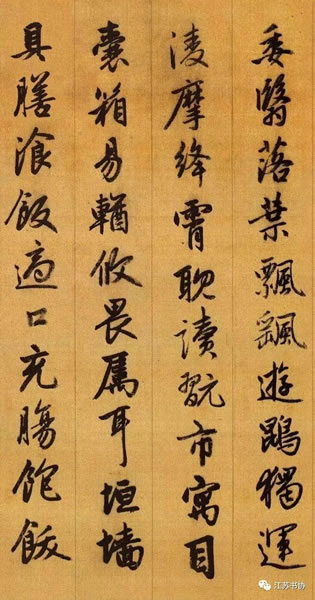 委翳落葉飄颻遊鵾獨運
淩摩絳霄耽讀翫市寓目
囊箱易輶攸畏屬耳垣墻
具膳飡飯適口充腸飽飫
江苏书协